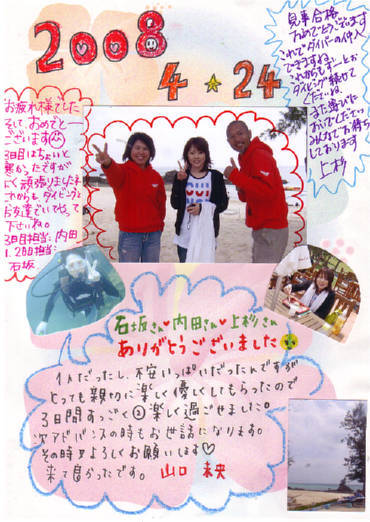 2008
4☆24
見事合格
おめでとうございます
これでダイバーの仲入
できますね
これからもずーっとか
ダイビング続けて
くださいね
また遊びた
おいでんだって
みんなでお待ち
しております
上杉
お疲れ様でした
そして、おめでとー
ございます
3日目はちょいと
寒かったですが
よく頑張りましたネ
これからも、ダイビングと
お友達でいやって
下さいね。
3日目担当:内田
1.2日担当:
石坂
石坂さん♥内田さん♥上杉さん
ありがとうございました
1人だったし、不安いっぱいだったんですが
とっても親切に楽しく優しくしてもらったので
3日間すっごく楽しく過ごせました。
アドバンスの時もお世話になります。
その時ヨロしくお願いします♡
来て良かったです。 山口 央